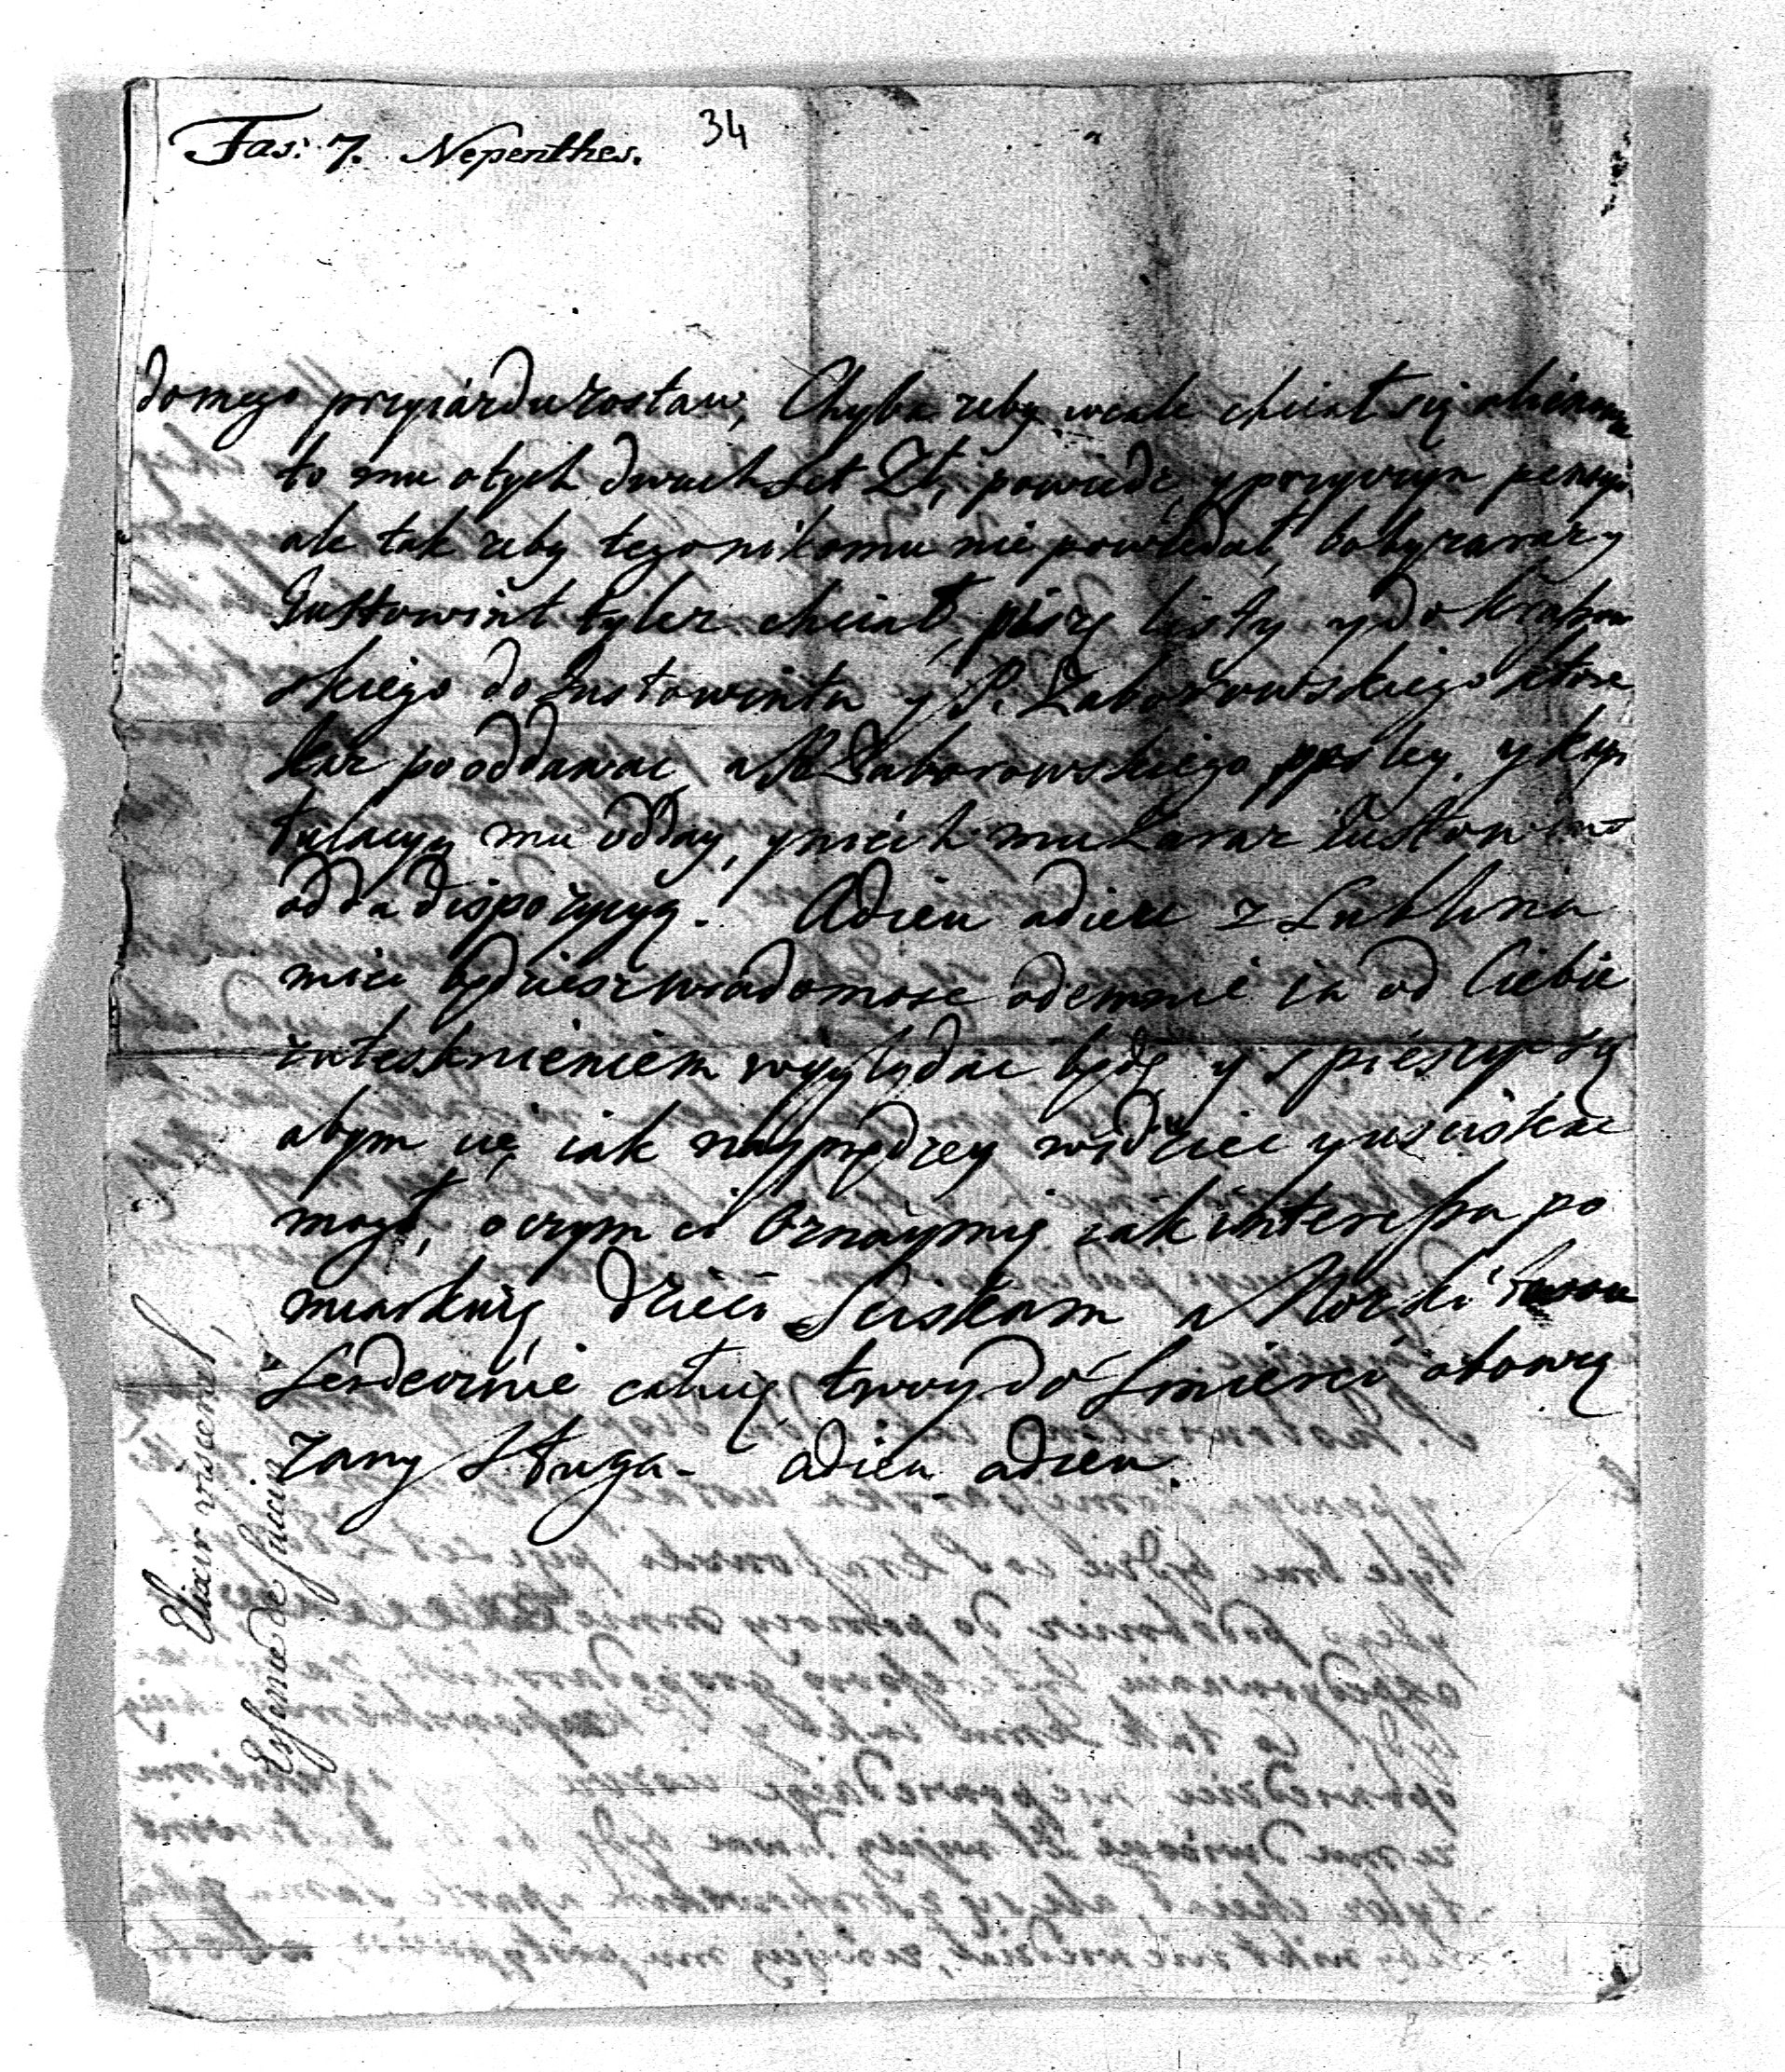 Fas: 7. Nepenthes.
34
domego przyiazdu zostaw, Chyba zeby wcale chciał się
to mu o tych dwuch set Zł, powiedz, y przyrzyn pensyi
ale tak zeby tego nikomu nie powiedał, bo by zaraz y
Justowint tylez chciał, piszę listy y do
skiego do Justowinta y P. Zaborowskiego ktore
kaz pooddawac a P. Zaborowskiego y kapi
tulacyą mu odday, y niech mu zaraz Justowint
odda dispozycyą. Adieu adieu z Lublina
miec będziesz wiadomosc odemnie ia od Ciebie
z utesknieniem wyglądac będę y spieszyc się
abym cię iak nayprędzey widziec y usciskac
mogł, o czym ci Oznaymię iak interessa po
miarkuię dzieci sciskam a Nozki
Serdecznie całuię twoy do Smierci obowią
zany Sługa - adieu adieu.
Elixir viscerial,
Essence de succin